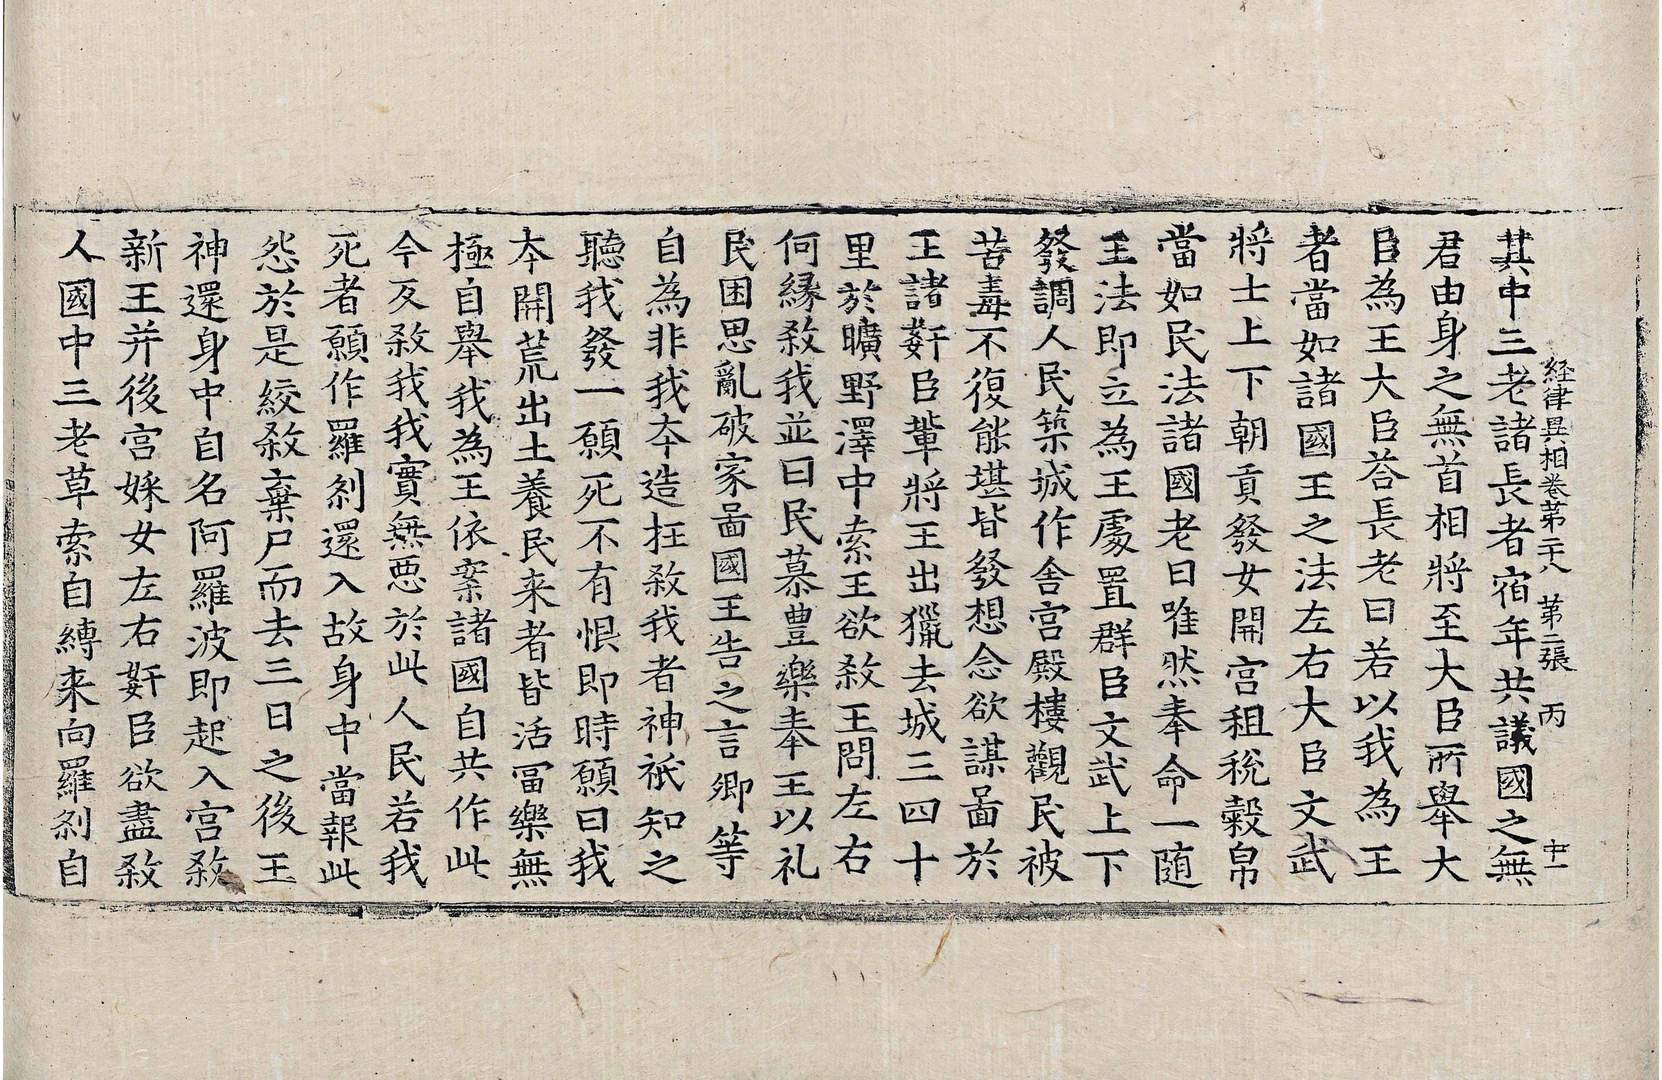 経律異相卷第二十八 第二張 丙 中一
其中三老諸長者宿年共議國之無
君由身之無首相將至大臣所舉大
臣為王大臣荅長老曰若以我為王
者當如諸國王之法左右大臣文武
將士上下朝貢發女開宫租稅穀帛
當如民法諸國老曰唯然奉命一随
王法即立為王處置群臣文武上下
發調人民築城作舍宫殿樓觀民被
苦毒不復能堪皆發想念欲謀啚於
王諸姧臣輩將王出獵去城三四十
里於曠野澤中索王欲煞王問左右
何縁煞我並曰民慕豊樂奉王以礼
民困思亂破家啚國王告之言卿等
自為非我夲造抂煞我者神祇知之
聽我發一願死不有恨即時願曰我
夲開荒出土養民来者皆活冨樂無
極自舉我為王依案諸國自共作此
今反煞我我實無惡於此人民若我
死者願作羅刹還入故身中當報此
怨於是絞煞棄尸而去三日之後王
神還身中自名阿羅波即起入宫煞
新王并後宫婇女左右姧臣欲盡煞
人國中三老草索自縛来向羅刹自